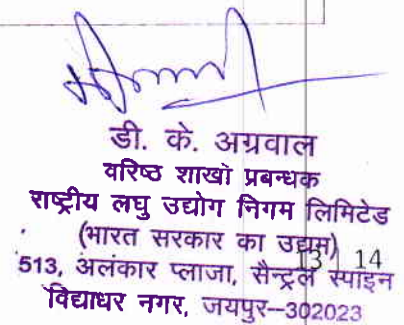 डी. के. अग्रवाल
वरिष्ठ शाखा प्रबन्धक
राष्ट्रीय लघु उद्योग निगम लिमिटेड
(भारत सरकार का उद्यम)
13 | 14
513, अलंकार प्लाजा, सैन्ट्रल स्पाइन
विद्याधर नगर, जयपुर–302023